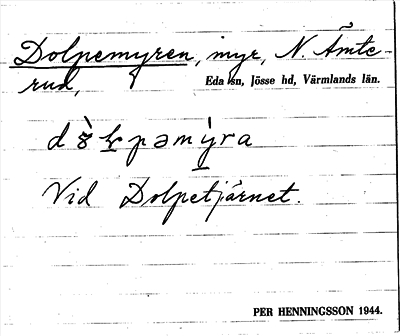 Dolpemyren, myr, N. Ämte-
rud, Eda sn, Jösse hd, Värmlands län.
Vid Dolpetjärnet.
PER HENNINGSSON 1944.